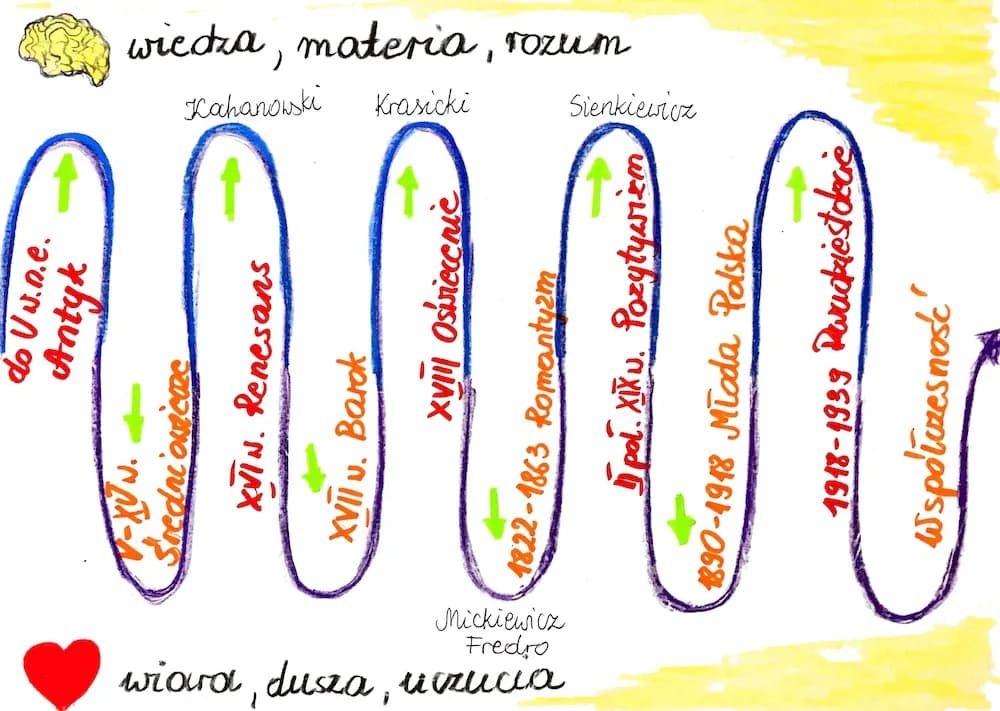 wiedza, materia, rozum
Kahanowski
Krasicki
Sienkiewicz
do V w.n.e.
Antyk
V-XV w.
Średniowiecze
XVI w. Renesans
XVII w. Barok
XVIII Oświecenie
1822-1863 Romantyzm
II poł. XIX w. Pozytywizm
1890-1918 Młoda Polska
1918-1939 Dwudziestolecie
Współczesność
Mickiewicz
Fredro
wiara, dusza, uczucia